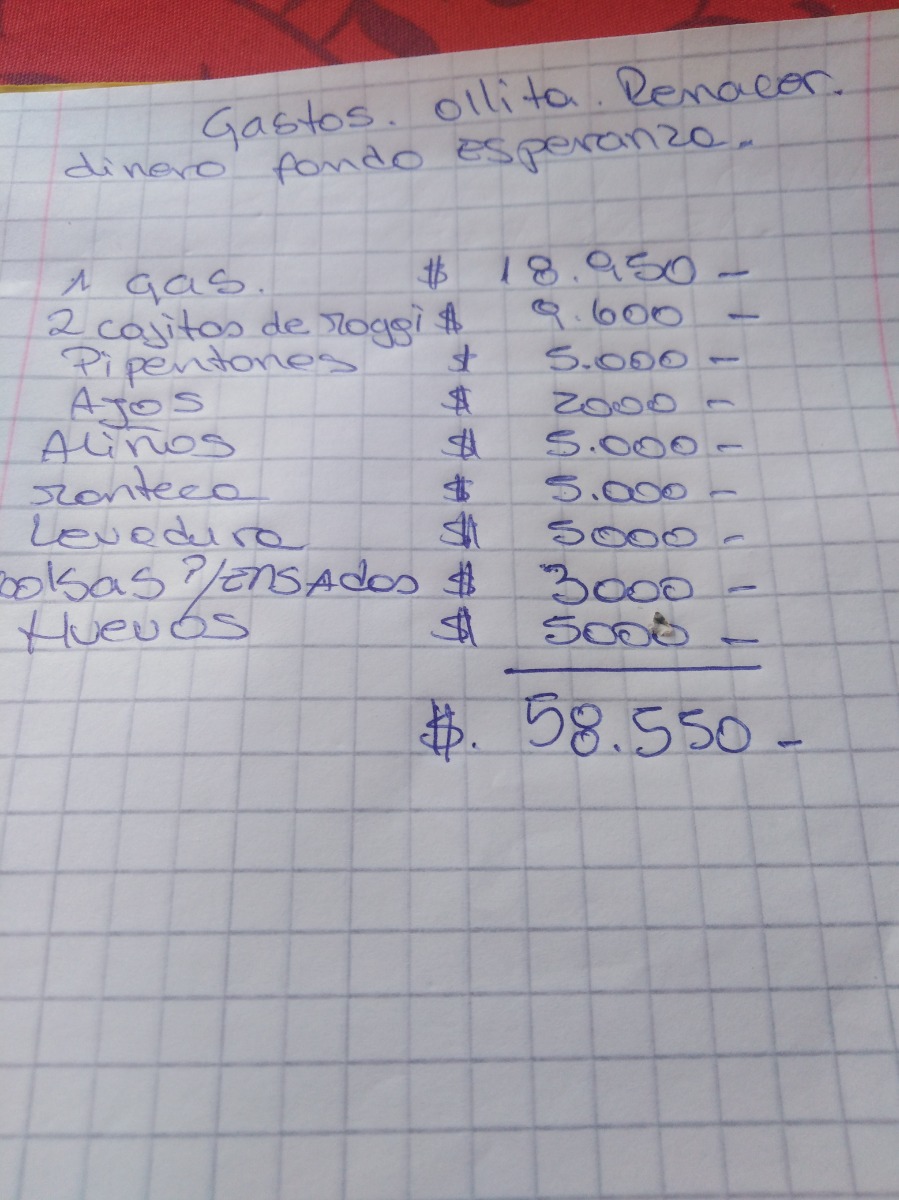 Gastos. ollita. Renacer.
dinero fondo esperanza.
1 gas. $ 18.950 -
2 cajitas de maggi $ 9.600 -
Pipentones $ 5.000 -
Ajos $ 2000 -
Aliños $ 5.000 -
manteca $ 5.000 -
Levadura $ 5000 -
bolsas P/ENSAdas $ 3000 -
Huevos $ 5000 -
$. 58.550 -